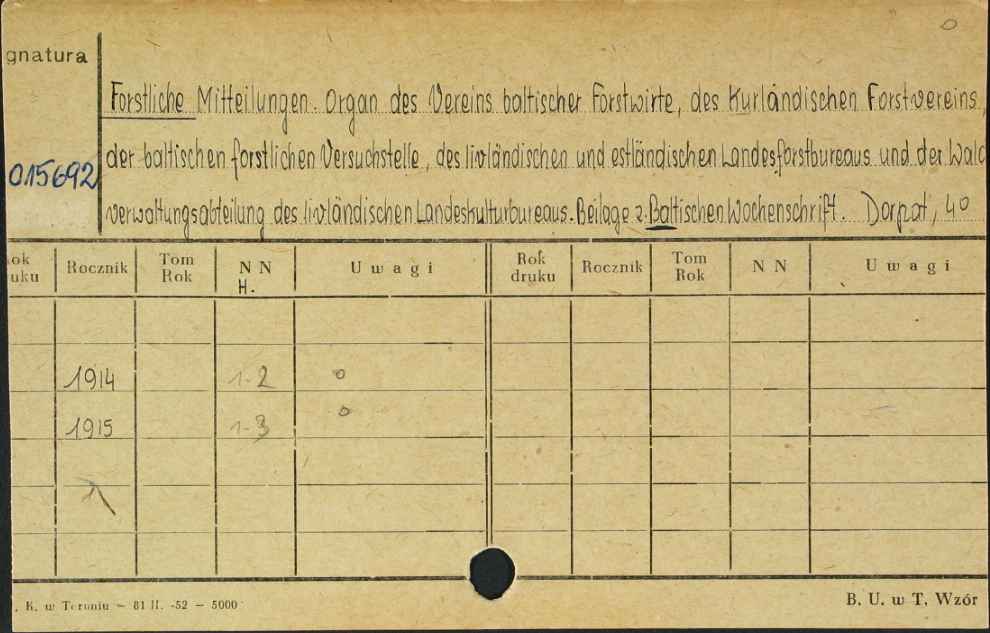 gnatura
Forstliche Mitteilungen. Organ des Vereins baltischer Forstwirte, des Kurländischen Forstvereins,
der baltischen forstlichen Versuchstelle, des livländischen und estländischen Landesforstbureaus und der Wald
015692
verwaltungsabteilung des livländischen Landeskulturbureaus. Beilage z. Baltischen Wochenschrift. Dorpat, 4°
ok uku Rocznik Tom Rok N N H. Uwagi Rok druku Rocznik Tom Rok N N Uwagi
1914 1-2 o
1915 1-3 o
. K. w Toruniu — 81 II. -52 — 5000
B. U. w T. Wzór